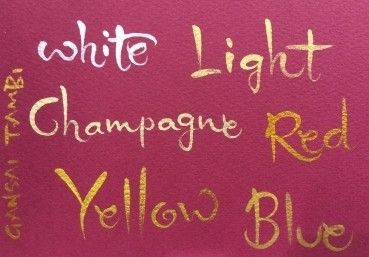 white Light
Champagne Red
Yellow Blue
GANSAI TAMBI